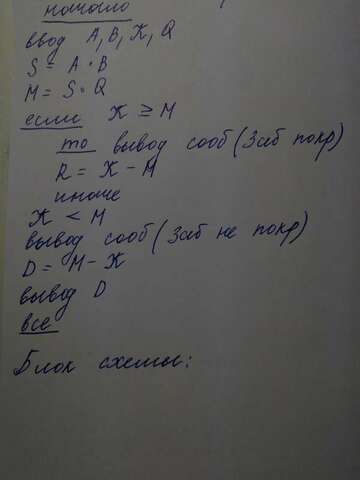 начало
ввод A, B, K, Q
S = A · B
M = S · Q
если K ≥ M
то вывод сооб (Заб покр)
R = K - M
иначе
K < M
вывод сооб (Заб не покр)
D = M - K
вывод D
все
Блок схемы: